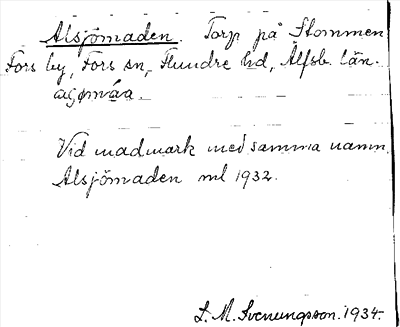 Alsjömaden. Torp på Stommen
Fors by, Fors sn, Flundre hd, Älfsb. län.
aʃømáa.
Vid madmark med samma namn.
Alsjömaden ml 1932.
L. M. Svenungsson. 1934.